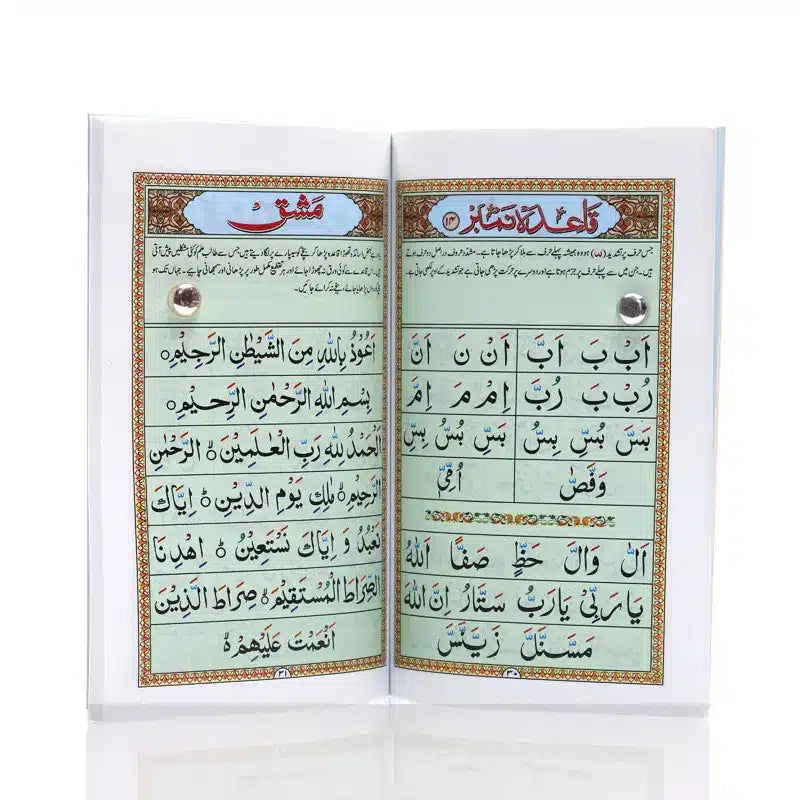 قاعدہ نمبر ۱۴
جس حرف پر تشدید (ّ) ہو وہ ہمیشہ پہلے حرف سے ملا کر پڑھا جاتا ہے۔ مشدد حروف دراصل دو حرف ہوتے
ہیں۔ جن میں سے پہلے حرف پر جزم ہوتا ہے اور دوسرے پر حرکت پڑھی جاتی ہے جو تشدید کے اوپر لکھی جاتی ہے۔
اَبْ بَ اَبَّ اَنْ نَ اَنَّ
رُبْ بَ رُبَّ اِمْ مَ اِمَّ
بَسَّ بُسِّ بِسُّ بَسِّ بُسُّ بِسِّ
وَفَصُّ اُمِّیِّ
اَلُّ وَالَّ حَظٍّ صَفًّا اَللّٰهُ
یَا رَبِّیْ یَا رَبُّ سَتَّارُ اِنَّ اللّٰهَ
مَسَّنَّلَّ زَیَّسَّ
۳۰
مشق
پڑھانی اور سمجھانی چاہیے۔ جہاں تک ہو
اَعُوْذُ بِاللّٰهِ مِنَ الشَّیْطٰنِ الرَّجِیْمِ ○
بِسْمِ اللّٰهِ الرَّحْمٰنِ الرَّحِیْمِ ○
اَلْحَمْدُ لِلّٰهِ رَبِّ الْعٰلَمِیْنَ ۙ الرَّحْمٰنِ
الرَّحِیْمِ ۙ مٰلِكِ یَوْمِ الدِّیْنِ ؕ اِیَّاكَ
نَعْبُدُ وَ اِیَّاكَ نَسْتَعِیْنُ ؕ اِهْدِنَا
الصِّرَاطَ الْمُسْتَقِیْمَ ۙ صِرَاطَ الَّذِیْنَ
اَنْعَمْتَ عَلَیْهِمْ ۙ
۳۱